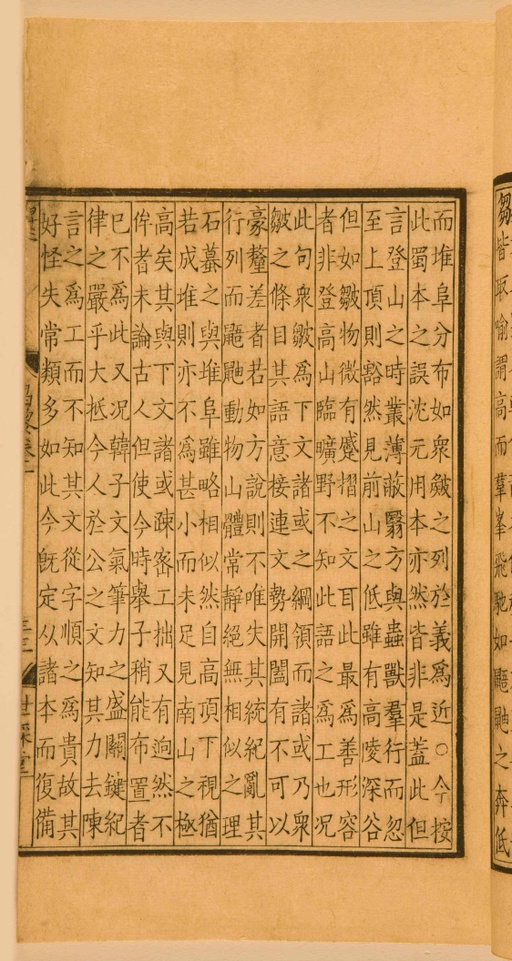 皆取喻謂高而羣峯飛馳如鼯鼬之奔低
而堆阜分布如衆皺之列於義爲近○今按
此蜀本之誤沈元用本亦然皆非是蓋此但
言登山之時叢薄蔽翳方與蟲獸羣行而忽
至上頂則豁然見前山之低雖有高陵深谷
但如皺物微有蹙摺之文耳此最爲善形容
者非登高山臨曠野不知此語之爲工也况
此句衆皺爲下文諸或之綱領而諸或乃衆
皺之條目其語意接連文勢開闔有不可以
豪釐差者若如方說則不唯失其統紀亂其
行列而鼯鼬動物山體常靜絕無相似之理
石蓦之與堆阜雖略相似然自高頂下視猶
若成堆則亦不爲甚小而未足見南山之極
高矣其與下文諸或疎宻工拙又有逈然不
侔者未論古人但使今時舉子稍能布置者
已不爲此又况韓子文氣筆力之盛關鍵紀
律之嚴乎大抵今人於公之文知其力去陳
言之爲工而不知其文從字順之爲貴故其
好怪失常類多如此今旣定从諸本而復備
世綵堂